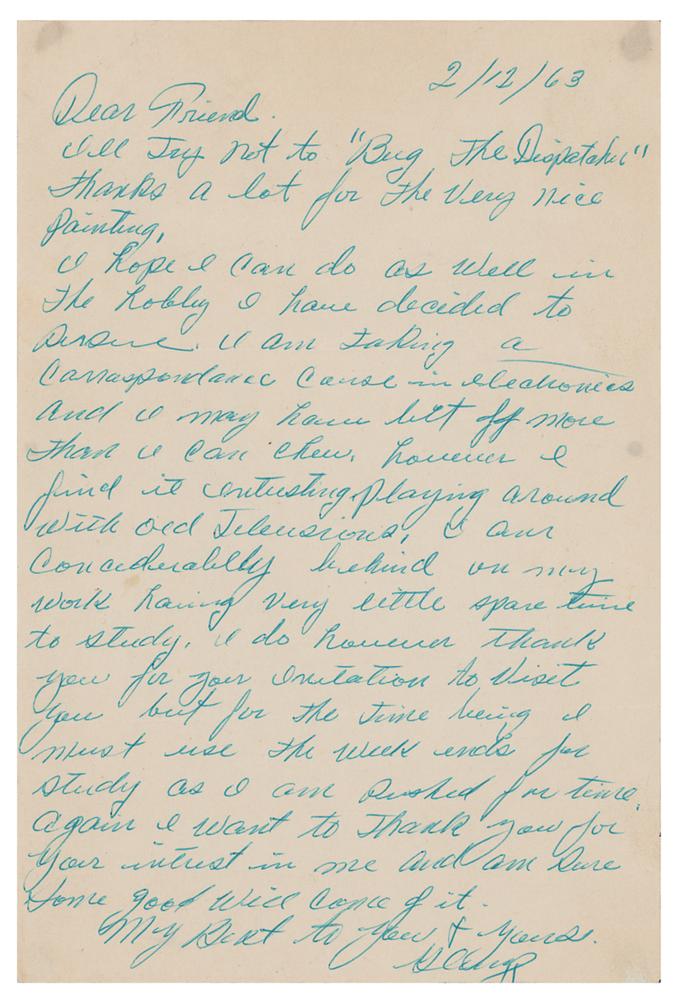 2/12/63
Dear Friend.
I'll Try Not to "Bug The Dispatcher"
Thanks a lot for The Very Nice
Painting,
I hope I can do as well in
The hobby I have decided to
Persue. I am taking a
Carraspondance Couse in electronics
And I may have bit off more
Than I can chew, however I
find it intresting playing around
with old Televisions, I am
Conciderablly behind on my
work having very little spare time
to study. I do however thank
you for your Invitation to Visit
you but for the time being I
must use the week ends for
study as I am rushed for time.
again I want to Thank you for
Your intrest in me and am sure
Some good will come of it.
My Best to You & Yours.